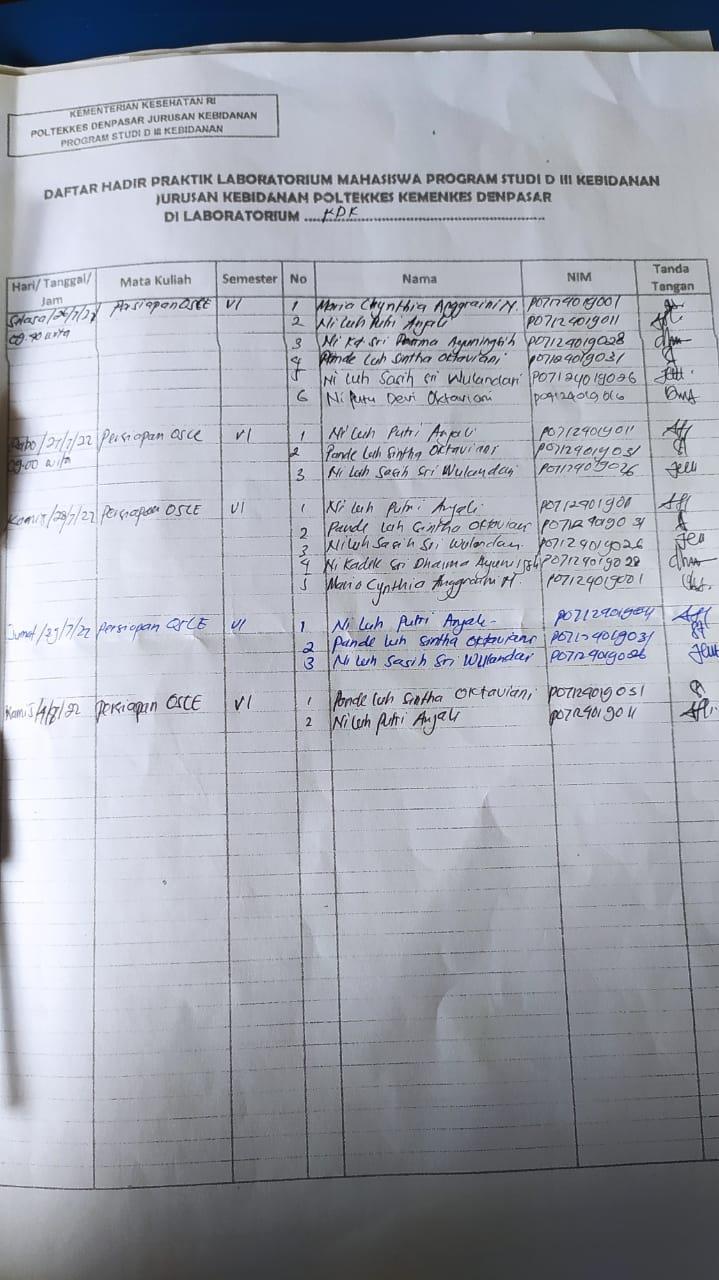 KEMENTERIAN KESEHATAN RI
POLTEKKES DENPASAR JURUSAN KEBIDANAN
PROGRAM STUDI D III KEBIDANAN
DAFTAR HADIR PRAKTIK LABORATORIUM MAHASISWA PROGRAM STUDI D III KEBIDANAN
JURUSAN KEBIDANAN POLTEKKES KEMENKES DENPASAR
DI LABORATORIUM ....KDK....
Hari/ Tanggal/ Jam Mata Kuliah Semester No Nama NIM Tanda Tangan
Selasa/26/7/22 Persiapan OSCE VI 1 Maria Chynthia Anggraini M. P07124019001
wita 2 Ni Luh Putri Anjali P07124019011
3 Ni Kd Sri Dharma Ayuningsih P07124019028
4 Pande Luh Sintha Oktaviani P07124019031
5 Ni Luh Sasih Sri Wulandari P07124019026
6 Ni Putu Devi Oktaviani P07124019016
Rabo/27/7/22 Persiapan OSCE VI 1 Ni Luh Putri Anjali P07124019011
09.00 wita 2 Pande Luh Sintha Oktaviani P07124019031
3 Ni Luh Sasih Sri Wulandari P07124019026
Kamis/28/7/22 Persiapan OSCE VI 1 Ni Luh Putri Anjali
2 Pande Luh Sintha Oktaviani P07124019031
3 Ni Luh Sasih Sri Wulandari P07124019026
4 Ni Kadek Sri Dharma P07124019028
5 Maria Cynthia Anggraini M. P07124019001
Jumat/29/7/22 Persiapan OSCE VI 1. Ni Luh Putri Anjali
2 Pande Luh Sintha Oktaviani P07124019031
3 Ni Luh Sasih Sri Wulandari P07124019026
Kamis/4/8/22 Persiapan OSCE VI 1 Pande Luh Sintha Oktaviani P07124019031
2 Ni Luh Putri Anjali P07124019011